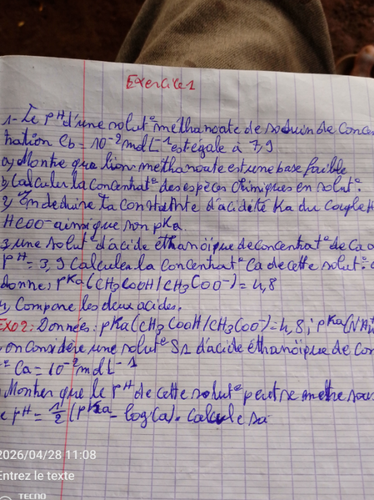 Exercice 1
1- Le pH d'une solutᵉ méthanoate de sodium de Conce
tration Cb = 10⁻² mol L⁻¹ est égale à 7,9
a) Montre que l'ion méthanoate est une base faible
b) Calculer la concentratᵉ des espèces chimiques en solutᵉ.
2, En déduire la constante d'acidité Ka du Couple H
HCOO⁻ ainsi que son pKa.
3, une solutᵉ d'acide éthanoïque de concentratᵉ de Ca a
pH = 3,9 Calculer la concentratᵉ Ca de cette solutᵉ.
donne: pKa(CH3COOH/CH3COO⁻) = 4,8
4, Compare les deux acides.
EXO2: Données: pKa(CH3COOH/CH3COO⁻) = 4,8; pKa(NH4⁺
on considère une solutᵉ S1 d'acide éthanoïque de Con
Ca = 10⁻² mol L⁻¹
Montrer que le pH de cette solutᵉ peut se mettre sous
e pH = 1/2 (pKa - log Ca). Calcule sa
2026/04/28 11:08
Entrez le texte
TECNO